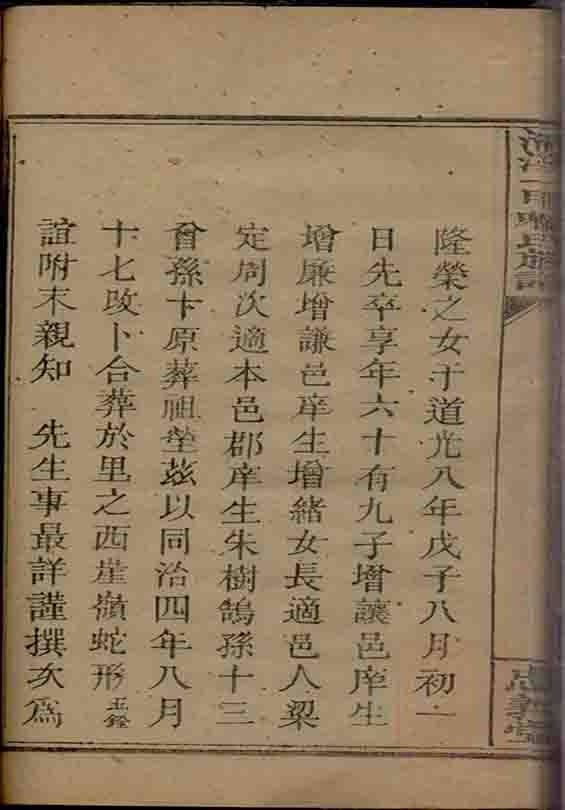 隆榮之女于道光八年戊子八月初一
日先卒享年六十有九子增讓邑庠生
增廉增謙邑庠生增緒女長適邑人梁
定周次適本邑郡庠生朱樹鵠孫十三
曾孫十原葬祖塋茲以同治四年八月
十七改卜合葬於里之西崖嶺蛇形
誼附末親知 先生事最詳謹撰次爲